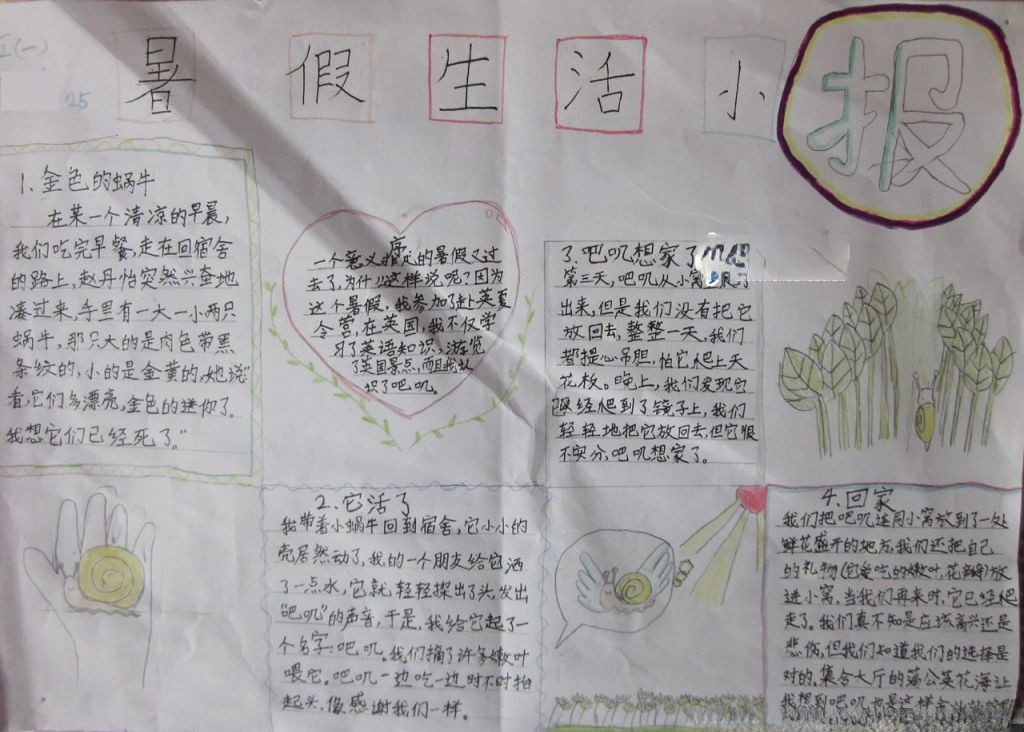 五(一)
25
暑假生活小报
1.金色的蜗牛
在某一个清凉的早晨,
我们吃完早餐,走在回宿舍
的路上,赵丹怡突然兴奋地
凑过来,手里有一大一小两只
蜗牛,那只大的是肉色带黑
条纹的,小的是金黄的,她说“
看,它们多漂亮,金色的送你了.
我想它们已经死了。”
序
一个意义非凡的暑假又过
去了,为什么这样说呢?因为
这个暑假,我参加了赴英夏
令营,在英国,我不仅学
习了英语知识,游览
了英国景点,而且我认
识了吧叽。
3.吧叽想家了
第三天,吧叽从小窝
出来,但是我们没有把它
放回去,整整一天,我们
都提心吊胆,怕它爬上天
花板。晚上,我们发现它
经爬到了镜子上,我们
轻轻地把它放回去,但它很
不安分,吧叽想家了。
2.它活了
我带着小蜗牛回到宿舍,它小小的
壳居然动了,我的一个朋友给它洒
了一点水,它就轻轻探出了头,发出
“吧叽”的声音,于是,我给它起了一
个名字:吧叽。我们摘了许多嫩叶
喂它。吧叽一边吃一边时不时抬
起头,像感谢我们一样。
4.回家
我们把吧叽连同小窝放到了一处
鲜花盛开的地方,我们还把自己
的礼物(它爱吃的嫩叶,花瓣)放
进小窝,当我们再来时,它已经爬
走了。我们真不知是应该高兴还是
悲伤,但我们知道我们的选择是
对的。集合大厅的蒲公英花海让
我想到吧叽也是这样